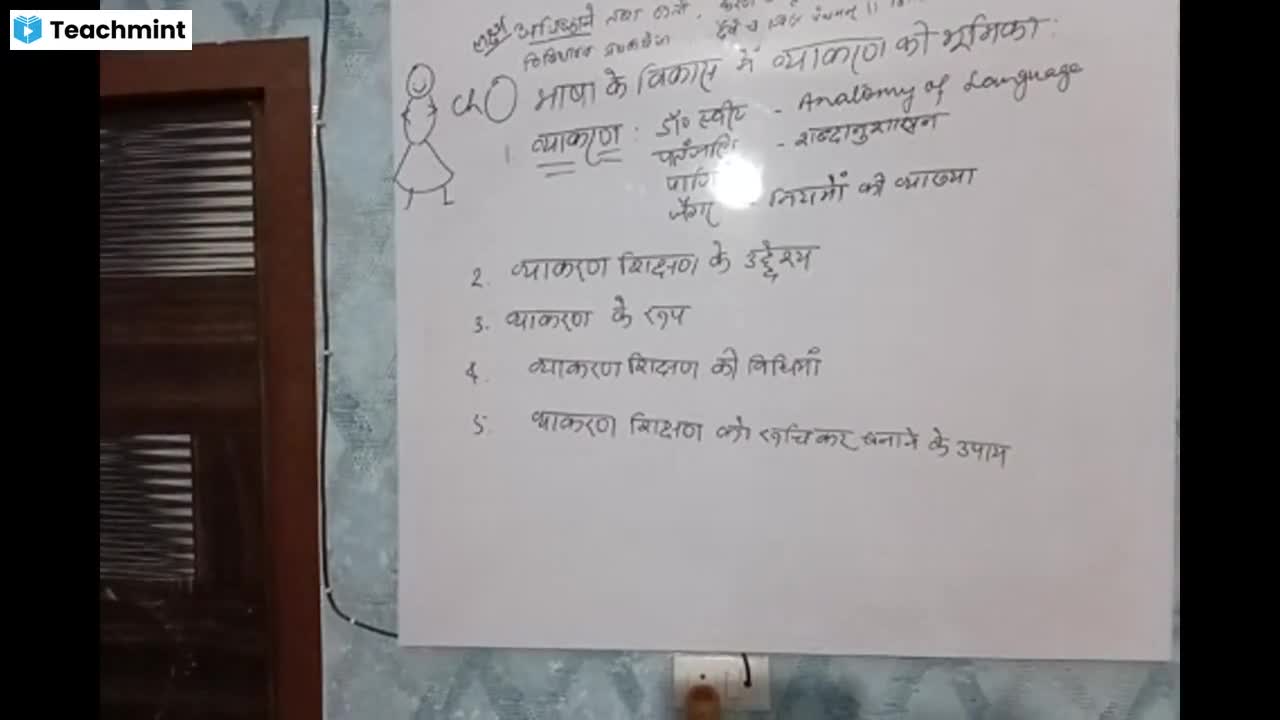 Teachmint
अधिष्ठानं तथा कर्ता
भाषा के विकास में व्याकरण की भूमिका :
1. व्याकरण : डॉ० स्वीट - Anatomy of Language
पतंजलि - शब्दानुशासन
- नियमों की व्याख्या
2. व्याकरण शिक्षण के उद्देश्य
3. व्याकरण के रूप
4. व्याकरण शिक्षण की विधियाँ
5. व्याकरण शिक्षण को रूचिकर बनाने के उपाय